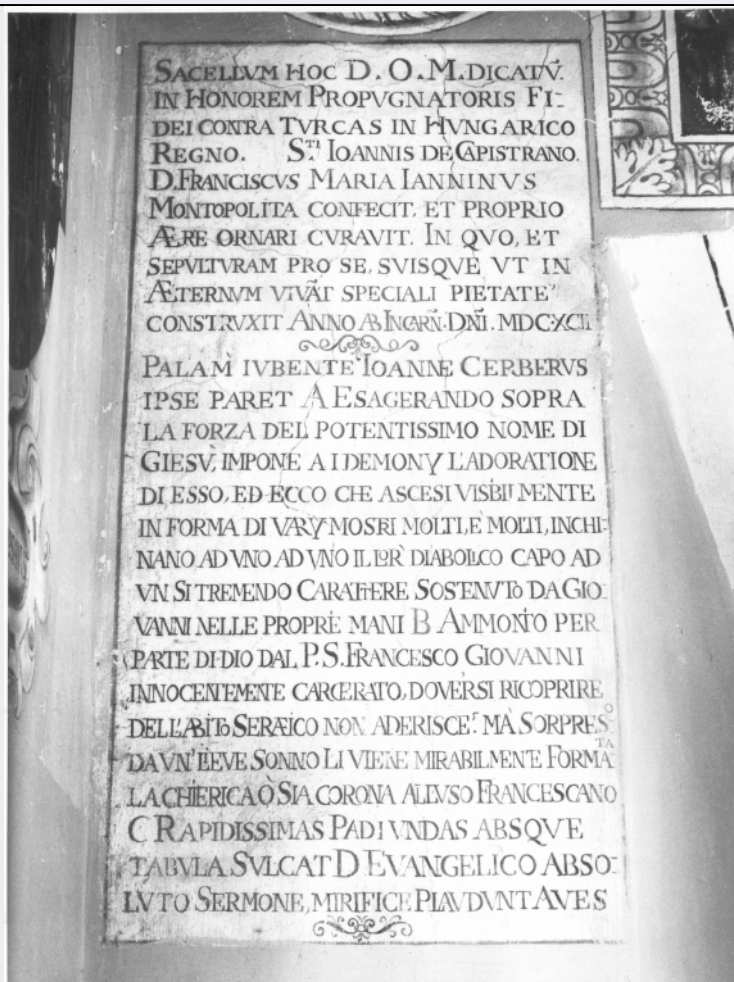 SACELLVM HOC D. O. M. DICATṼ.
IN HONOREM PROPVGNATORIS FI-
DEI CONTRA TVRCAS IN HVNGARICO
REGNO. S.TI IOANNIS DE CAPISTRANO.
D. FRANCISCVS MARIA IANNINVS
MONTOPOLITA CONFECIT, ET PROPRIO
ÆRE ORNARI CVRAVIT. IN QVO, ET
SEPVLTVRAM PRO SE, SVISQVE VT IN
ÆTERNVM VIVÃT SPECIALI PIETATE
CONSTRVXIT ANNO AB INCARÑ. DÑI. MDCXCII
PALAM IVBENTE IOANNE CERBERVS
IPSE PARET A ESAGERANDO SOPRA
LA FORZA DEL POTENTISSIMO NOME DI
GIESV, IMPONE A I DEMONY L'ADORATIONE
DI ESSO, ED ECCO CHE ASCESI VISBILMENTE
IN FORMA DI VARY MOSTRI MOLTI, E MOLTI, INCHI-
NANO AD VNO AD VNO IL LOR DIABOLICO CAPO AD
VN SI TREMENDO CARATHERE SOSTENVTO DA GIO-
VANNI NELLE PROPRIE MANI B AMMONITO PER
PARTE DI DIO DAL P. S. FRANCESCO GIOVANNI
INNOCENTEMENTE CARCERATO, DOVERSI RICOPRIRE
DELL'ABITO SERAFICO NON ADERISCE: MÀ SORPRESO
DA VN' LIEVE SONNO LI VIENE MIRABILMENTE FORMATA
LA CHIERICA Ò SIA CORONA ALL'VSO FRANCESCANO
C RAPIDISSIMAS PADI VNDAS ABSQVE
TABVLA SVLCAT D EVANGELICO ABSO-
LVTO SERMONE, MIRIFICE PLAVDVNT AVES